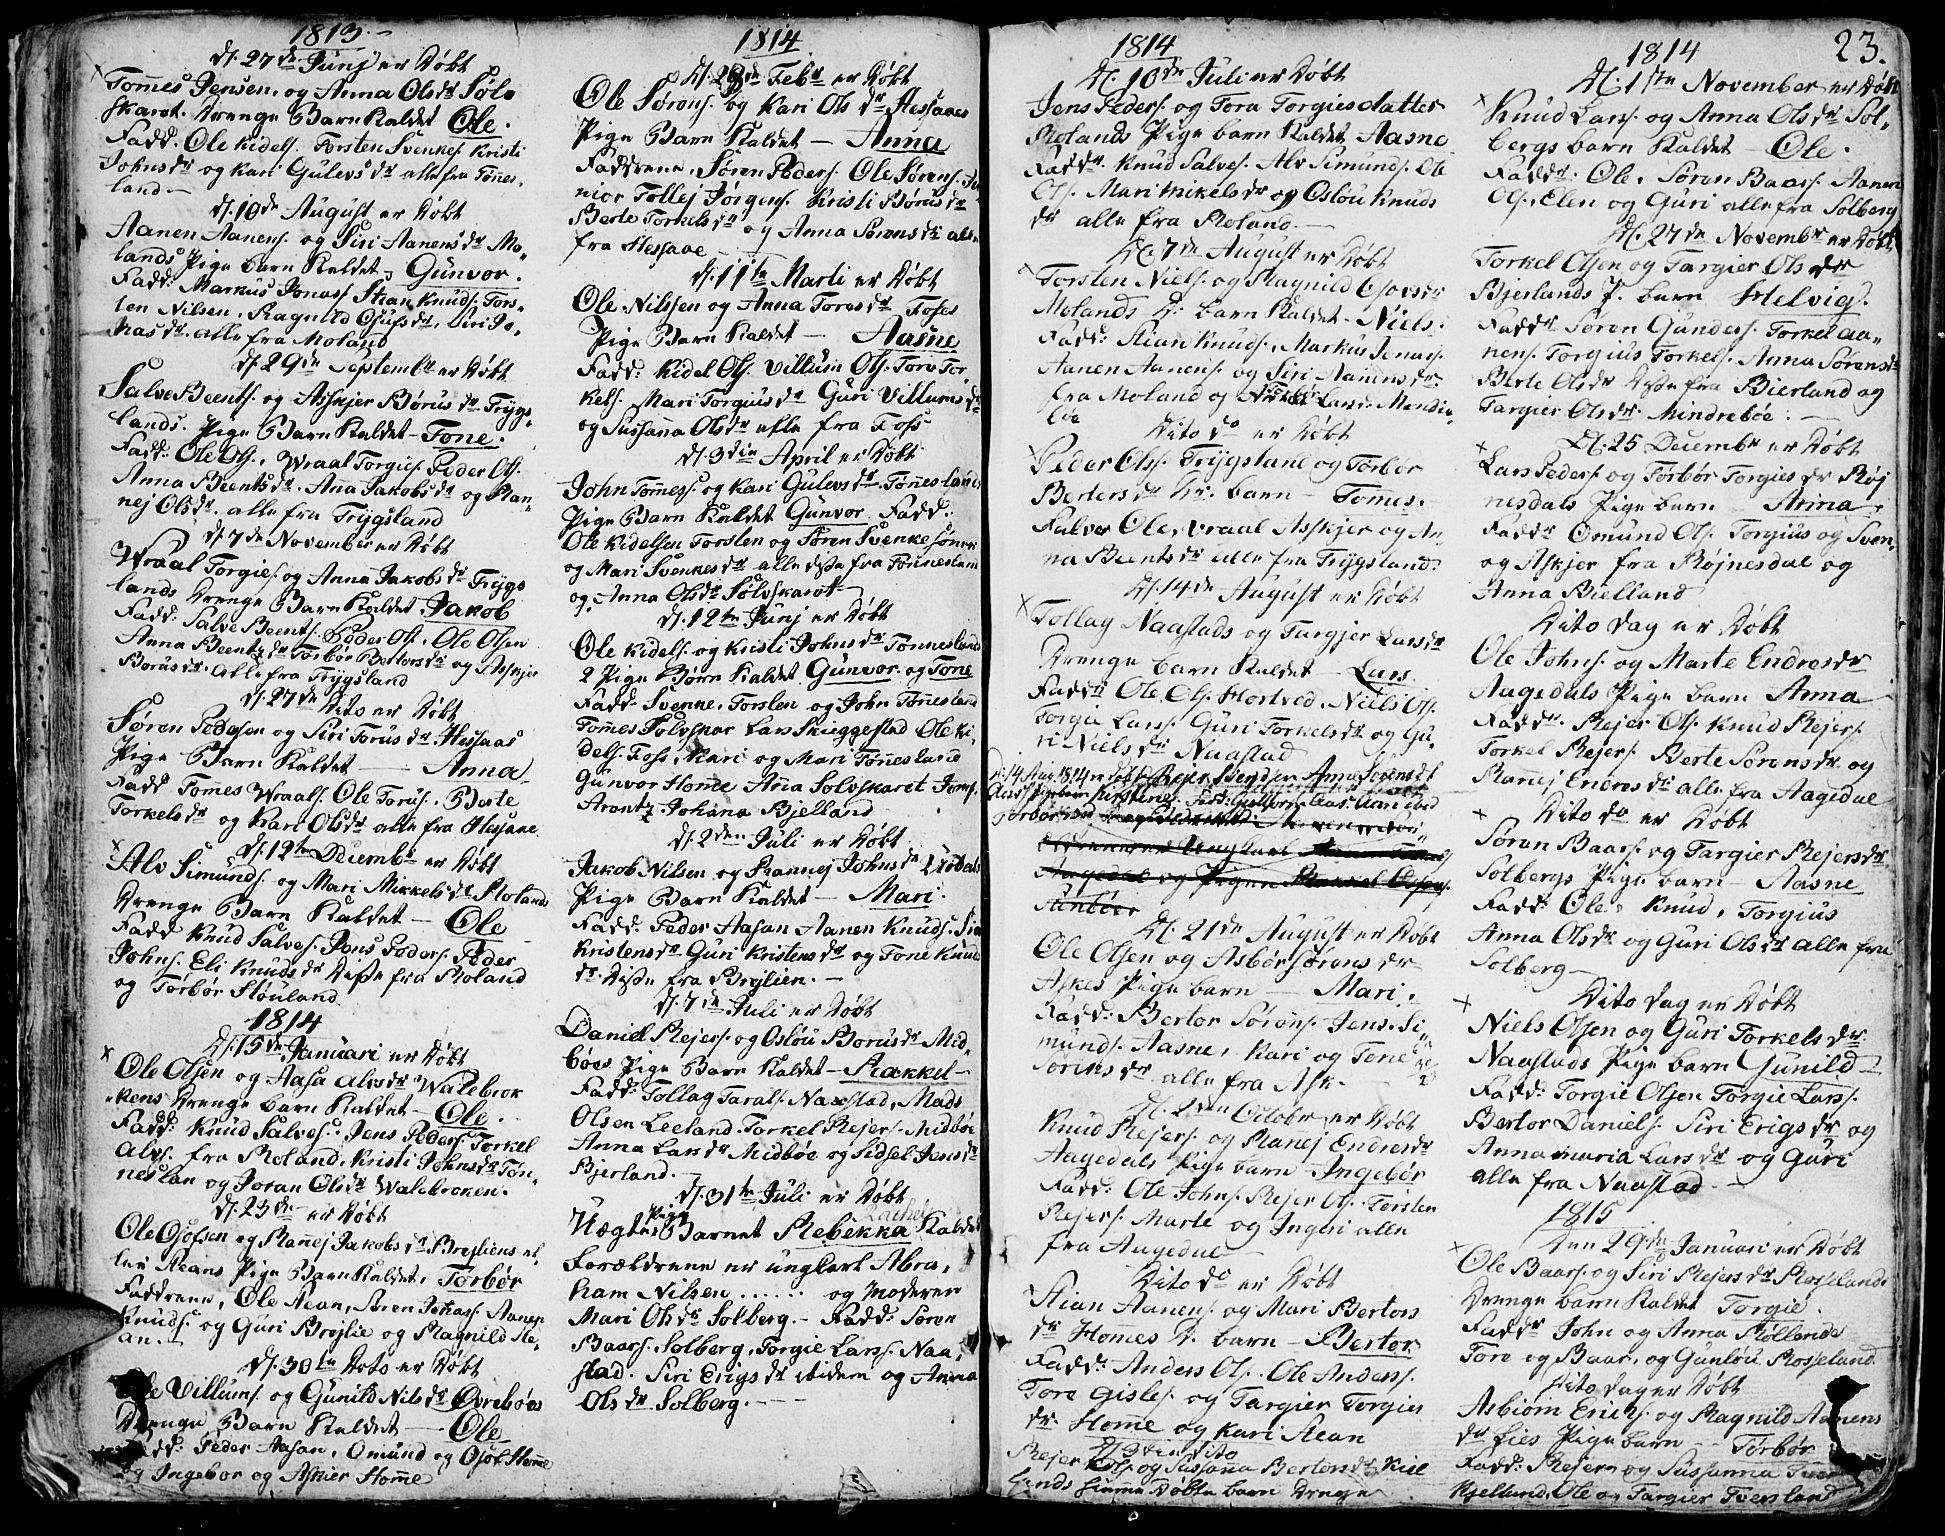 1813.
d/. 27de Junj er døbt
Tomes Jensen, og Anna Olsdr Sølv
skarot. Drenge Barn Kaldet Ole.
Fadd. Ole Kidels. Torsten Svenkes. Kristi
Johnsdr og Kari Gulevsdr alle fra Tønes-
land
d/. 10de August er døbt
Aanen Aanens. og Siri Aanensdr Mo-
lands Pige barn Kaldet, Gunvor.
Fadd. Markus Jonass. Stian Knuds. Tors-
ten Nilsen, Ragnild Osufsdr, Siri Jo-
nasdr. alle fra Moland
d/. 29de Septembr er døbt
Salve Beents. og Asskjer Børusdr Trygs-
lands. Pige Barn Kaldet - Tone.
Fadd: Ole Ols. Wraal Torgies. Peder Ols.
Anna Beentsdr. Ana Jakobsdr og Ran-
nej Olsdr. alle fra Trygsland
d/. 7de November er døbt
Wraal Torgies. og Anna Jakobsdr Trygs
lands Drenge Barn Kaldet Jakob
Fadd: Salve Beents. Peder Ols. Ole Olsen
Anna Beentsdr Torbør Bertorsdr og Asskjer
Borusdr. alle fra Trygsland
d/. 27de Dito er døbt
Søren Pedersen og Siri Torusdr Hessaas
Pige Barn Kaldet — Anna
Fadd Tomes Wraals. Ole Torus. Berte
Torkelsdr og Kari Olsdr alle fra Hessaae
d/. 12te Decembr er døbt
Alv Simunds. og Mari Mikkelsdr Rolands
Drenge Barn Kaldet — Ole
Fadd Knud Salves. Jens Peders. Peder
Johns. Eli Knudsdr disse fra Roland
og Torbør Støuland
1814
d/. 15de Januari er døbt
Ole Olsen og Aasa Alvsdr Walebrok
kens Drenge barn Kaldet — Ole.
Fadd: Knud Salves. Jens Peders. Torkel
Alvs. fra Roland. Kristi Johnsdr Tøn-
neslan og Joran Olsdr Walebroken.
d/. 23de — er døbt
Ole Osofsen og Ranej Jakobsdr Brejliens el
ler Aeans Pige Barn Kaldet, Torbør
Faddrene, Ole Aean, Søren Jakas. Aanen
Knuds. og Guri Brejlie og Ragnild Ae-
an.
d/. 30te Dito er døbt
Ole Villums. og Gunild Nilsdr Øvrebøes
Drenge Barn Kaldet — Ole
Fadd: Peder Aasan, Omund og Osof Homme
og Ingebor og Askier Home
1814
d/. 28de Febr er døbt
Ole Sørens. og Kari Olsdr Hessaaes
Pige Barn Kaldet — Anna
Faddrene, Søren Peders. Ole Sørens. Ju-
nior Tollej Jørgens. Kristi Børusdr
Berte Torkelsdr og Anna Sørensdr alle
fra Hessaae
d/. 11te Marti er døbt
Ole Nilssen og Anna Toresdr Foses
Pige Barn Kaldet — Aasne
Fadd: Kidel Ols. Villum Ols. Tore Tor-
kels. Mari Torgiusdr Guri Villumsdr
og Sussana Olsdr alle fra Foss
d/. 3die April er døbt
John Tomess. og Kari Gulevsdr Tønneslands
Pige Barn Kaldet Gunvor. Fadd:
Ole Kidelsen Torsten og Søren Svenkesønner
og Mari Svenkesdr alle disse fra Tønnesland
og Anna Olsdr Sølvskarott
d/. 12te Junj er døbt
Ole Kidels. og Kristi Johnsdr Tønnesland
2 Pige Børn Kaldet Gunvor og Tone
Fadd: Svenke, Torsten og John Tønnesland
Tomes Sølvskar Lars Skieggestad Ole Ki-
dels. Foss, Kari og Mari Tønnesland
Gunvor Homme Ana Solvskaret
Arentz Johana Bjelland
d/. 2den Juli er døbt
Jakob Nilsen og Rannej Johnsdr
Pige Barn Kaldet — Mari.
Fadd: Peder Aasan Aanen Knuds. Siri
Kristensdr Guri Kristensdr og Tone Knuds
dr disse fra Brejlien. —
d/. 7de Juli er døbt
Daniel Rejers. og Osløu Borusdr Mid-
bøes Pige Barn Kaldet — Rakkel
Fadd: Tollag Taralds. Naastad, Mads
Olsen Leeland. Torkel Rejers. Midbøe
Anna Larsdr Midbøe og Sidsel Jensdr
Bjerland.
d/. 31te Juli er døbt
Uægte Pige Barnet Rebekka Kaldet
Rachel
Forældrene er ungkarl Abra-
ham Nilsen ...... og moderen
Mari Olsdr Solberg. — Fadd: Søren
Baars. Solberg, Torgie Larss. Naa-
stad. Siri Erigsdr ibidem og Anna
Olsdr Solberg. —
1814
d/. 10de Juli er døbt
Jens Peders. og Tora Torgiesdatter
Rolands Pige barn Kaldet Aasne
Faddr. Knud Salves. Alv Simunds. Ole
Ols. Mari Mikelsdr og Osløu Knuds
dr alle fra Roland. —
d/. 7de August er døbt
Torsten Niels. og Ragnild Osovsdr
Molands D. barn Kaldet — Niels.
Fadd: Stian Knuds. Markus Jonas.
Aanen Aanens. og Siri Aanensdr
fra Moland og Larsdr Mindre
bøe
Dito do er døbt
Peder Olss. Trygsland og Torbør
Bertorsdr Dr. barn — Tomes.
Salves Ole, Wraal Asskjer og An-
na Beentsdr alle fra Trygsland.
d/. 14de August er døbt
Tollag Naastads og Targjer Larsdr
Drenge barn Kaldet — Lars.
Faddr Ole Ols. Hortved. Niels Ols.
Torgie Larss. Guri Torkelsdr og Gu-
ri Nielsdr Naastad
d. 14 Aug. 1814 er døbt Anna Sørensdr
d/. 21de August er døbt
Ole Olsen og Asbør Sørensdr
Askes Pige barn — Mari.
Fadd: Bertor Sørens. Jens Si-
munds. Aasne, Kari og Tone
Sørensdr alle fra Ask. —
d/. 2den Octobr er døbt
Knud Rejers. og Ranej Endresdr
Aagedals Pige barn — Ingebør
Fadd: Ole Johns. Rejer Ols. Torsten
Rejers. Marte og Ingbri alle
fra Aagedal
Dito do er døbt
Stian Aanens. og Mari Bertors
dr Homes D. barn — Bertor
Fadd: Anders Ols. Ole Anders.
Tore Gisles. og Targier Torgies
dr. Home og Kari Aean
Dito
Rejer Ols. og Sussana Bertorsdr Kiel
lands hiemme døbte barn Drenge
1814
23.
d/. 1ste November er døbt
Knud Larss. og Anna Olsdr Sol-
bergs barn Kaldet — Ole.
Faddr: Ole, Søren Baars. Aanen
Ols. Elen og Guri alle fra Solberg
d/. 27de Novembr er døbt
Torkel Olsen og Targier Olsdr
Bjerlands P. barn Helvig.
Faddr Søren Gunders. Torkel Aa-
nens. Torgius Torkels. Anna Sørensdr
Berte Olsdr disse fra Bierland og
Targier Olsdr. Mindrebøe. —
d/. 25 Decembr er døbt
Lars Peders. og Torbør Torgiusdr Røj
nesdals Pige barn — Anna.
Faddr Omund Ols. Torgius og Sven-
og Askjer fra Røjnesdal og
Anna Bielland
Dito dag er døbt
Ole Johns. og Marte Endresdr
Aagedals Pige barn Anna
Faddr. Rejer Ols. Knud Rejers.
Torkel Rejers. Berte Sørensdr og
Rannej Endresdr alle fra Aagedal
Dito do er døbt
Søren Baars. og Targier Rejersdr
Solbergs Pige barn — Aasne
Fadd: Ole, Knud, Torgius
Anna Olsdr og Guri Olsdr alle fra
Solberg —
Dito dag er døbt
Niels Olsen og Guri Torkelsdr
Naastads Pige barn Gunild
Fadd: Torgie Olsen Torgie Larss.
Bertor Daniels. Siri Erigsdr og
Anna maria Larsdr og Guri
alle fra Naastad —
1815
Den 29de Januari er døbt
Ole Baars. og Siri Rejersdr Rosselands
Drenge barn Kaldet Torgie.
Faddr John og Anna Røllends
Tore og Baar, og Gunløu Rosseland.
Dito dag er døbt
Asbiørn Erichs. og Ragnild Aanens
dr Lies Pige barn — Torbør
Fadd: Rejer og Sussanna
Kjelland. Ole og Targier Tversland